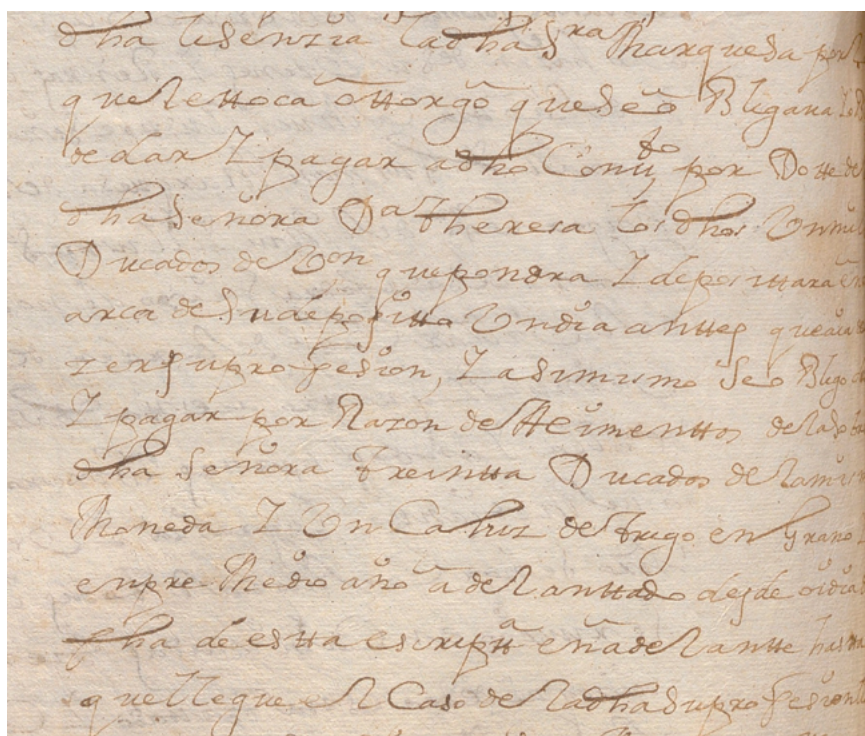 dha lisenzia la dha Sra Marquesa por
que le ttoca ottorgo que se oBligaua
de dar Y pagar a dho Convto por Dotte de
dha Señora Da Theresa los dhos Un mil
Ducados de Von que pondra Y deposittara en
arca de su deposstto Un dia anttes que
zer su profesion, Y asimismo se oBligo
Y pagar por Razon de Alimenttos de la
dha Señora treintta Ducados de la mism
Moneda Y Un Cahiz de trigo en Grano
en pre Medio año adelanttado desde oi dia
fha de estta escriptta en adelantte hasta
que llegue el Caso de la dha su profesion